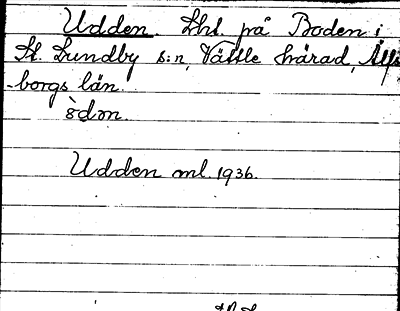 Udden. Lht. på Boden i
St. Lundby s:n, Vättle härad, Älfs
-borgs län.
òdən.
Udden ml. 1936.